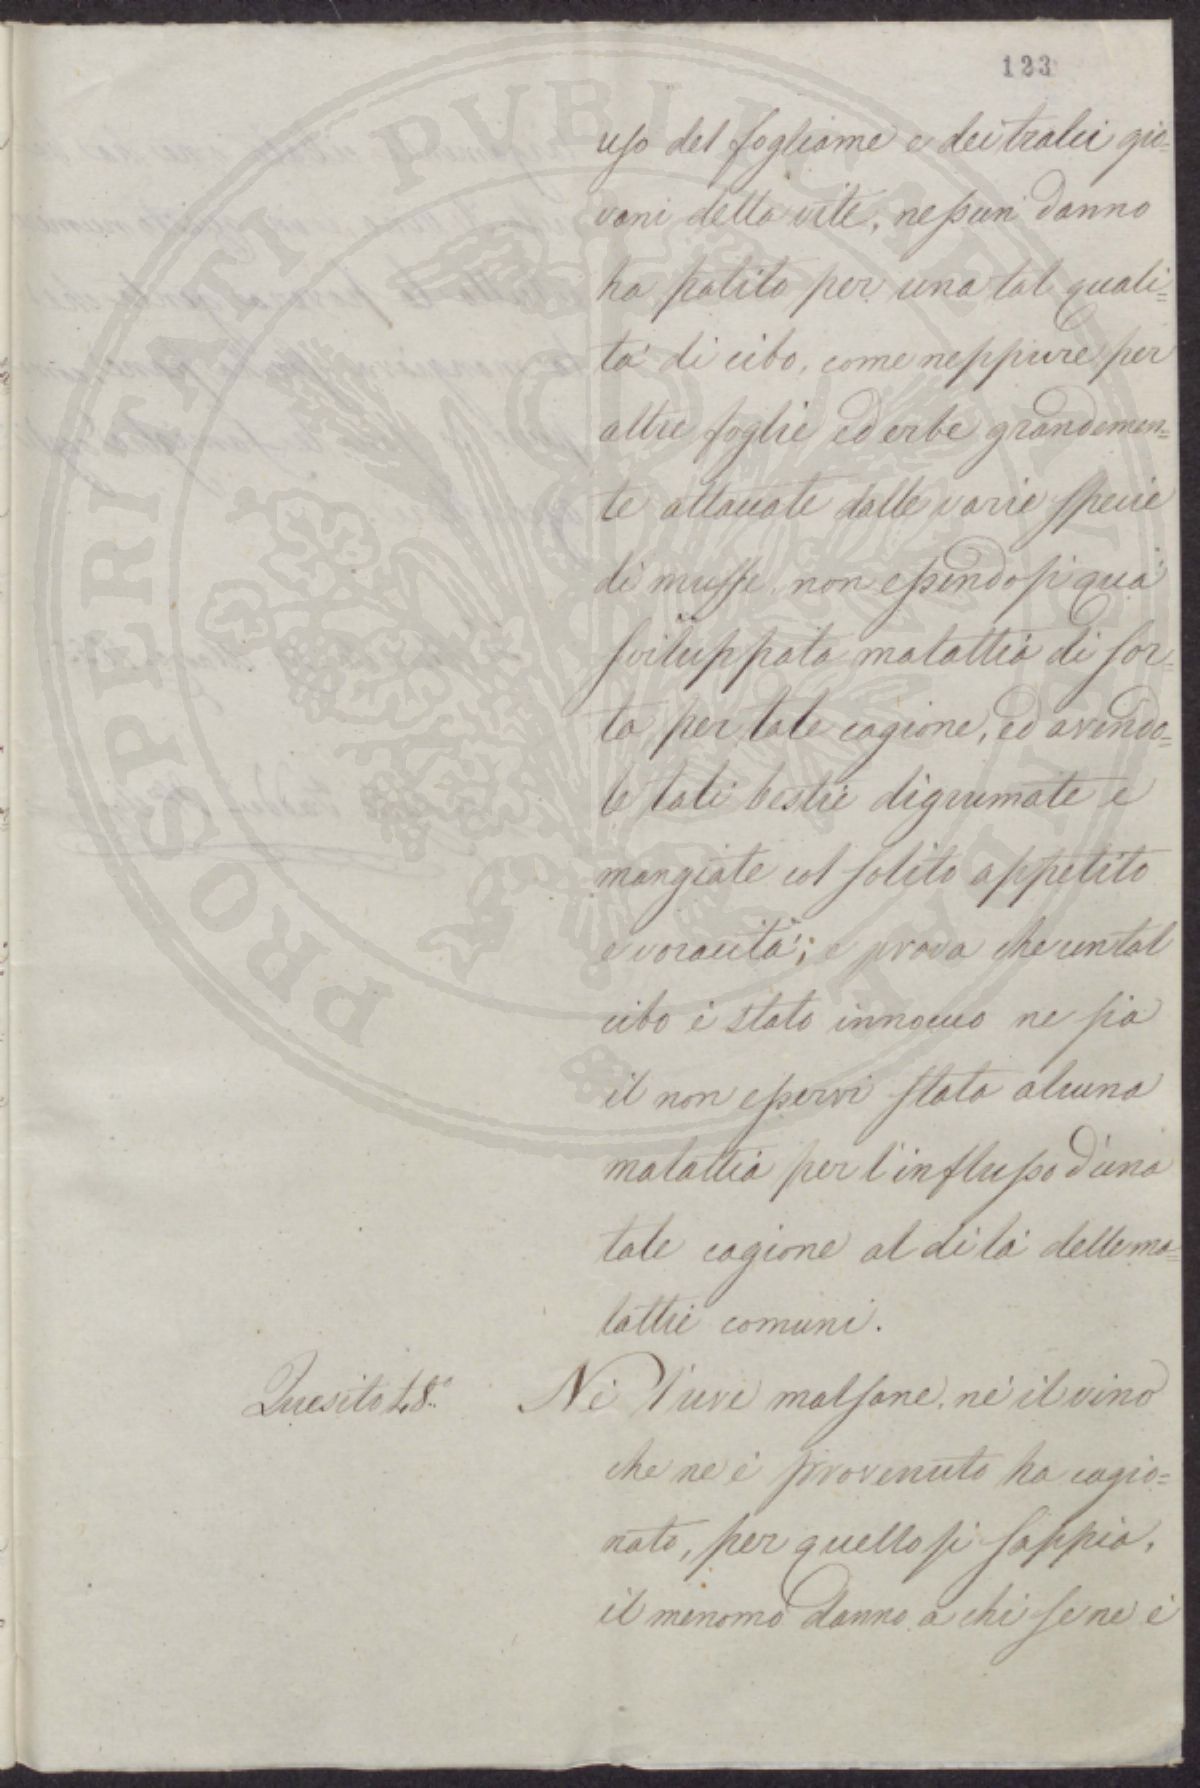 123
uso del fogliame e dei tralci gio=
vani della vite, nessun danno
ha patito per una tal quali=
tà di cibo, come neppure per
altre foglie ed erbe grandemen=
te attaccate dalle varie specie
di muffe, non essendosi quà
sviluppata malattia di sor=
ta per tale cagione, ed avendo=
le tali bestie digrumate e
mangiate col solito appetito
e voracità; e prova che un tal
cibo è stato innocuo ne sia
il non esservi stata alcuna
malattia per l'influsso d'una
tale cagione al di là delle ma=
lattie comuni.
Quesito 48.° Nè l'uve malsane, nè il vino
che ne è provenuto ha cagio=
nato, per quello si sappia,
il menomo danno a chi se ne è
PROSPERITATI PVBLICAE AVGENDAE